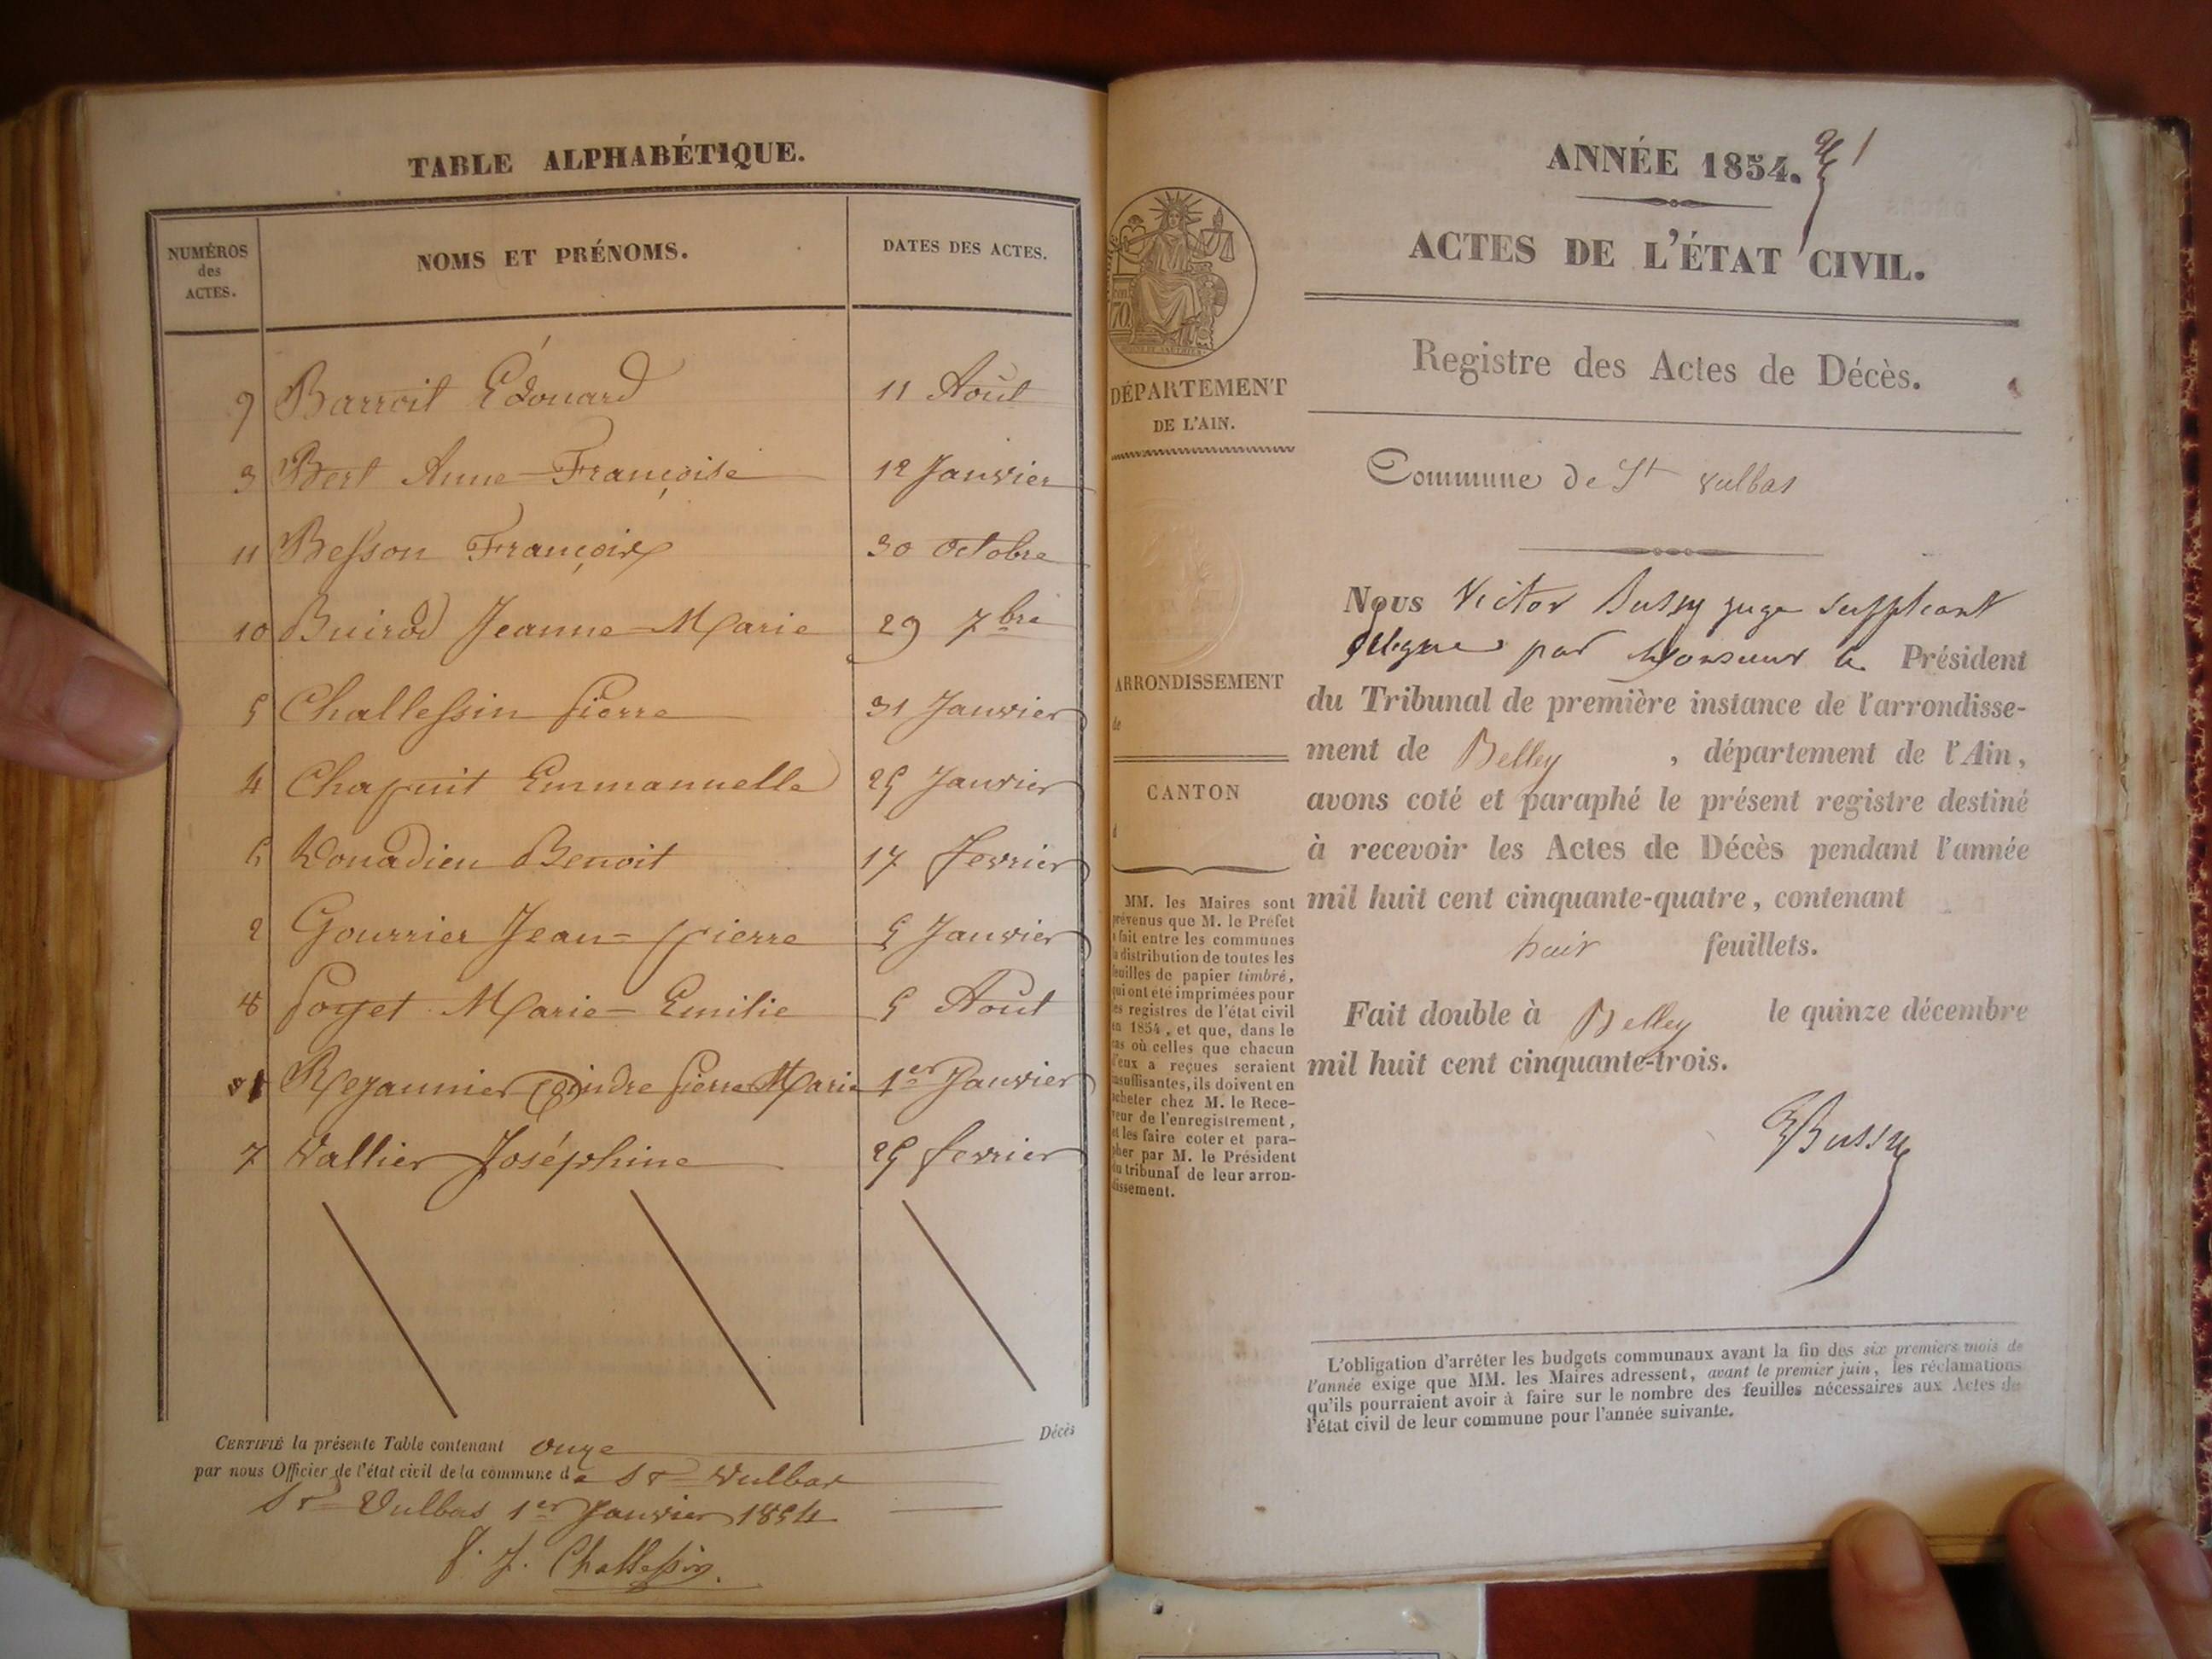 TABLE ALPHABÉTIQUE.
NUMÉROS des ACTES. NOMS ET PRÉNOMS. DATES DES ACTES.
9 Barroit Édouard 11 Août
3 Bert Anne-Françoise 12 Janvier
11 Besson François 30 Octobre
10 Buirod Jeanne-Marie 29 7bre
5 Challessin Pierre 31 Janvier
4 Chapuit Emmanuelle 25 Janvier
6 Donadieu Benoit 17 fevrier
2 Gourrier Jean-pierre 5 Janvier
8 Poyet Marie-Emilie 5 Août
1 Pierre Marie 1er Janvier
7 Vallier Joséphine 25 fevrier
CERTIFIÉ la présente Table contenant onze
Décès
par nous Officier de l'état civil de la commune de St Vulbas
St Vulbas 1er Janvier 1854
Challessin.
ANNÉE 1854. 1
ACTES DE L'ÉTAT CIVIL.
Registre des Actes de Décès.
DÉPARTEMENT
DE L'AIN.
Commune de St Vulbas
ARRONDISSEMENT
de
CANTON
d
MM. les Maires sont
prévenus que M. le Préfet
a fait entre les communes
la distribution de toutes les
feuilles de papier timbré,
qui ont été imprimées pour
les registres de l'état civil
en 1854, et que, dans le
cas où celles que chacun
d'eux a reçues seraient
insuffisantes, ils doivent en
acheter chez M. le Rece-
veur de l'enregistrement,
et les faire coter et para-
pher par M. le Président
du tribunal de leur arron-
dissement.
Nous Victor Bussy juge suppleant
délégué par Monsieur le Président
du Tribunal de première instance de l'arrondisse-
ment de Belley , département de l'Ain,
avons coté et paraphé le présent registre destiné
à recevoir les Actes de Décès pendant l'année
mil huit cent cinquante-quatre, contenant
huit feuillets.
Fait double à Belley le quinze décembre
mil huit cent cinquante-trois.
VBussy
L'obligation d'arrêter les budgets communaux avant la fin des six premiers mois de
l'année exige que MM. les Maires adressent, avant le premier juin, les réclamations
qu'ils pourraient avoir à faire sur le nombre des feuilles nécessaires aux Actes de
l'état civil de leur commune pour l'année suivante.